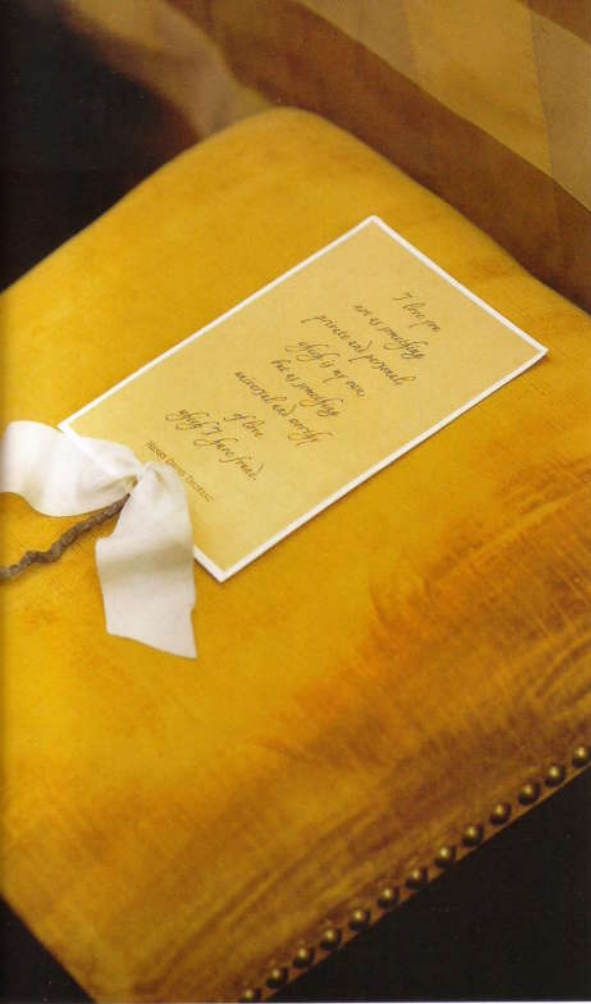 I love you
not as something
private and personal,
which is my own,
but as something
universal and worthy
of love
which I have found.
HENRY DAVID THOREAU